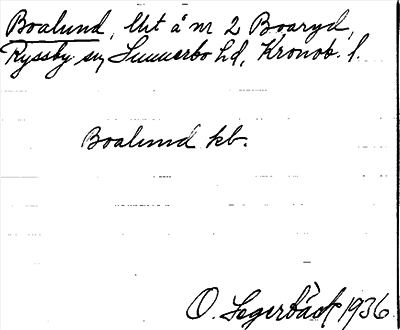 Boalund, lht å nr 2 Boaryd,
Ryssby sn, Sunnerbo hd, Kronob. l.
Boalund kb.
O. Segerbäck 1936